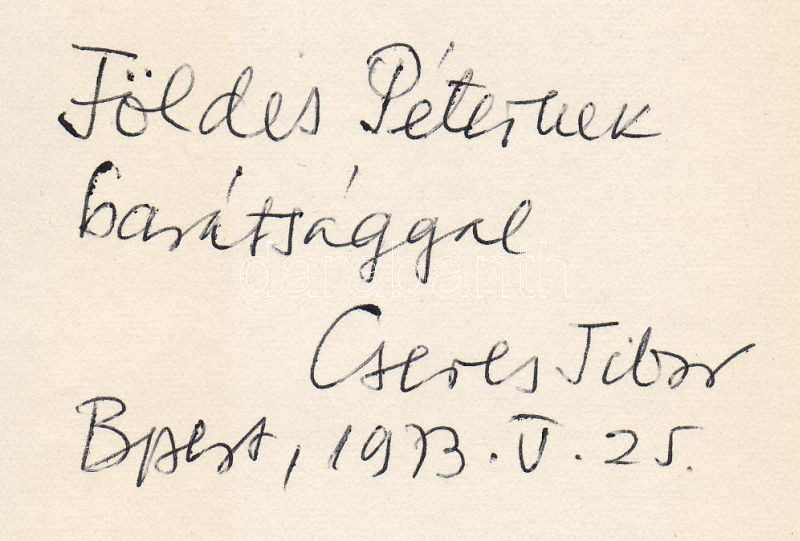 Földes Péternek
barátsággal
darabanth
Cseres Tibor
Bpest, 1973. V. 25.